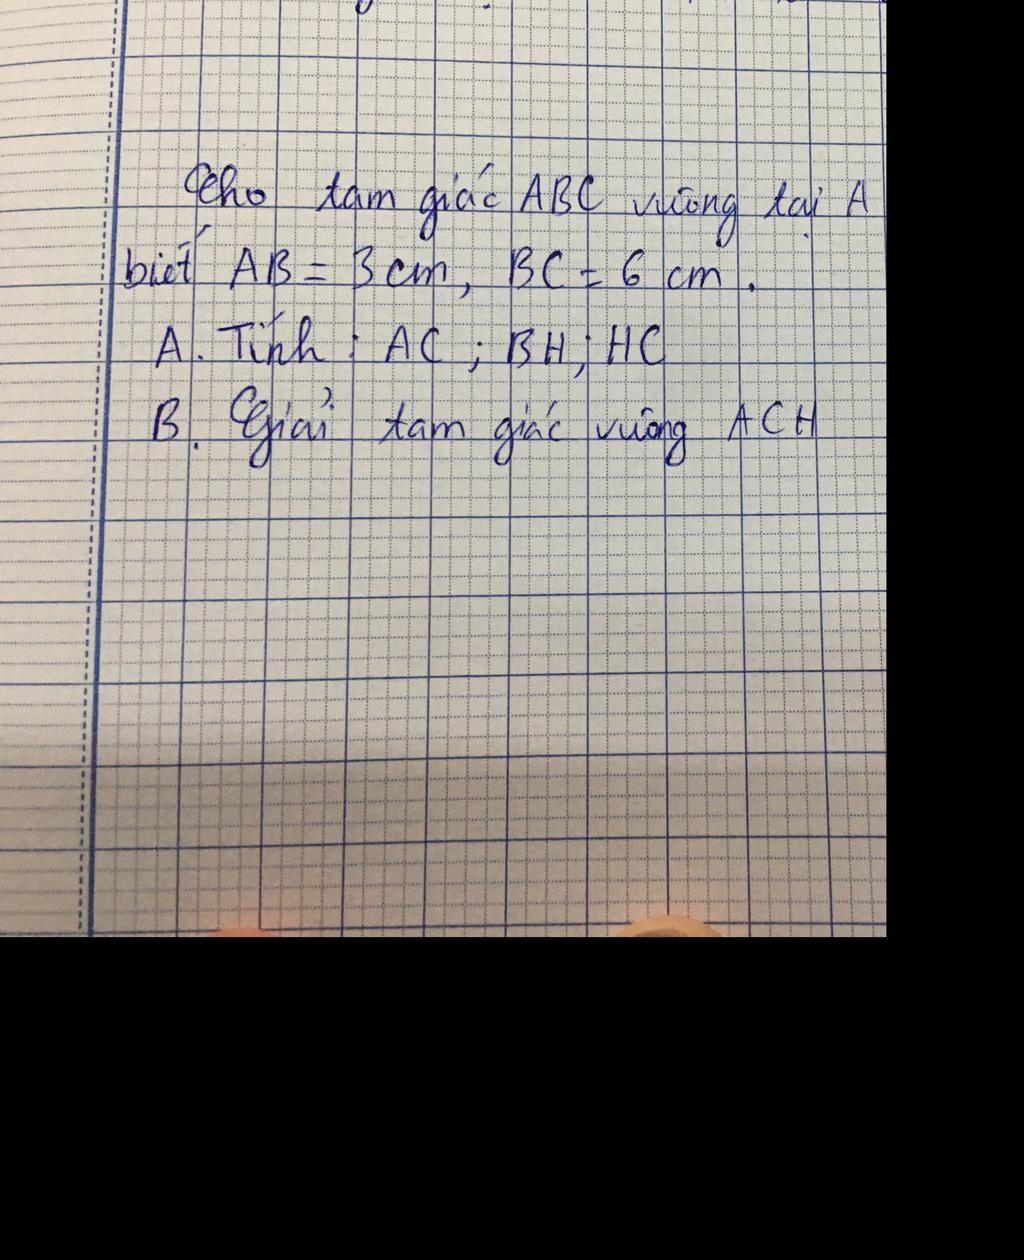 Cho tam giác ABC vuông tại A
biết AB = 3 cm, BC = 6 cm.
A. Tính : AC ; BH ; HC
B. Giải tam giác vuông ACH